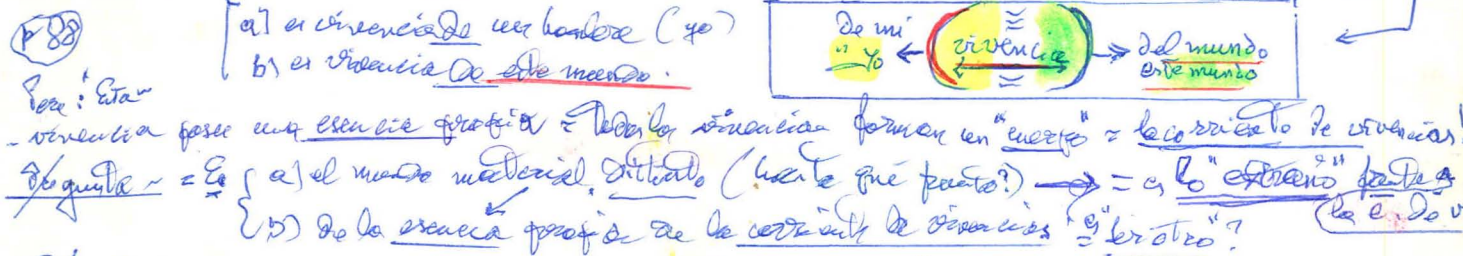 p 88
a) es vivencia de un hombre (yo)
b) es vivencia de este mundo.
De mi "yo" ← vivencia → del mundo
este mundo
Pero: Esta
- vivencia posee una esencia propia = Todas las vivencias forman un "cuerpo" = la corriente de vivencias
Pregunta = Es { a) el mundo material distinto (hasta qué punto?) → = es lo "extraño" frente a
b) De la esencia propia de la corriente de vivencias "el "ser otro"?